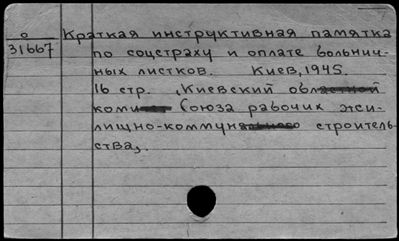 о
31667
Краткая инструктивная памятка
по соцстраху и оплате больнич-
ных листков. Киев, 1945.
16 стр. (Киевский областной
коми Союза рабочих жи-
лищно-коммунального строитель-
ства).